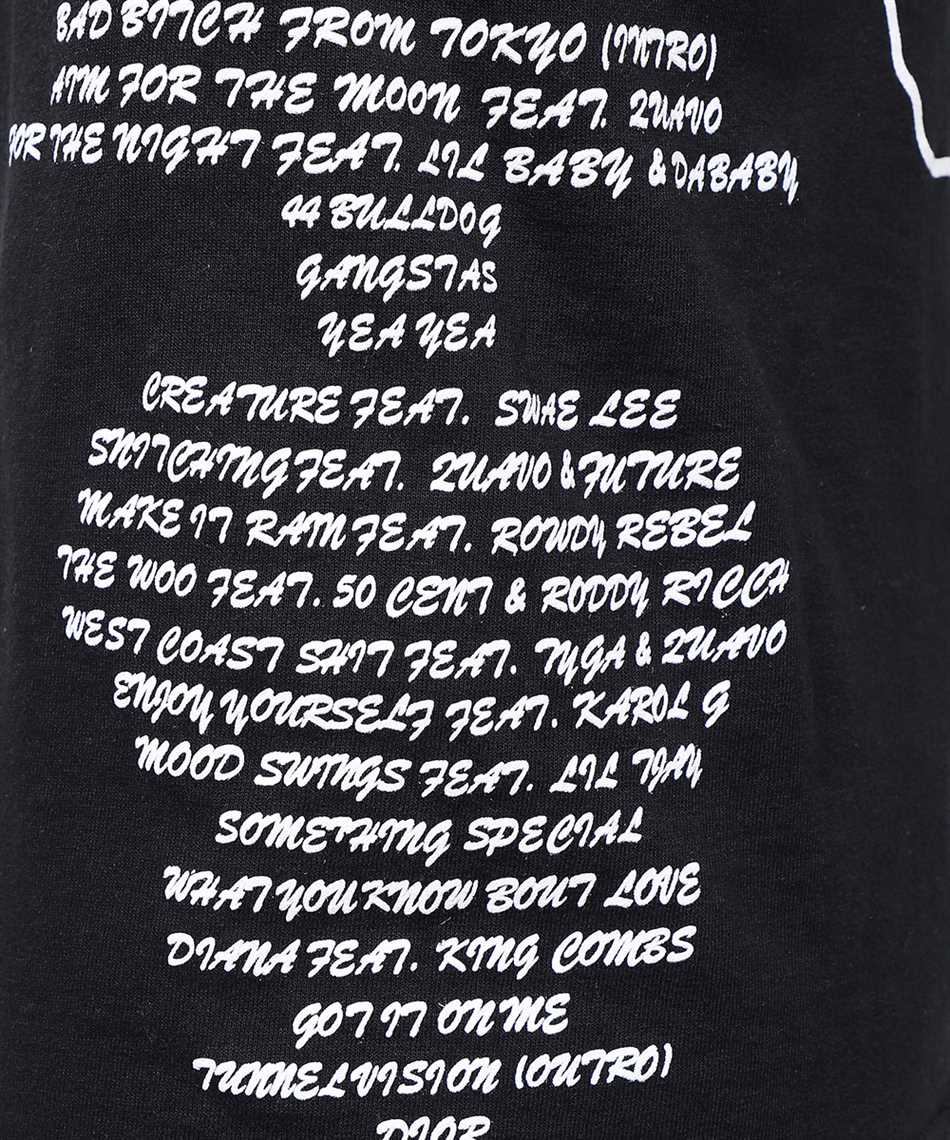 BAD BITCH FROM TOKYO (INTRO)
AIM FOR THE MOON FEAT. QUAVO
FOR THE NIGHT FEAT. LIL BABY & DABABY
44 BULLDOG
GANGSTAS
YEA YEA
CREATURE FEAT. SWAE LEE
SNITCHING FEAT. QUAVO & FUTURE
MAKE IT RAIN FEAT. ROWDY REBEL
THE WOO FEAT. 50 CENT & RODDY RICCH
WEST COAST SHIT FEAT. TYGA & QUAVO
ENJOY YOURSELF FEAT. KAROL G
MOOD SWINGS FEAT. LIL TJAY
SOMETHING SPECIAL
WHAT YOU KNOW BOUT LOVE
DIANA FEAT. KING COMBS
GOT IT ON ME
TUNNEL VISION (OUTRO)
DIOR